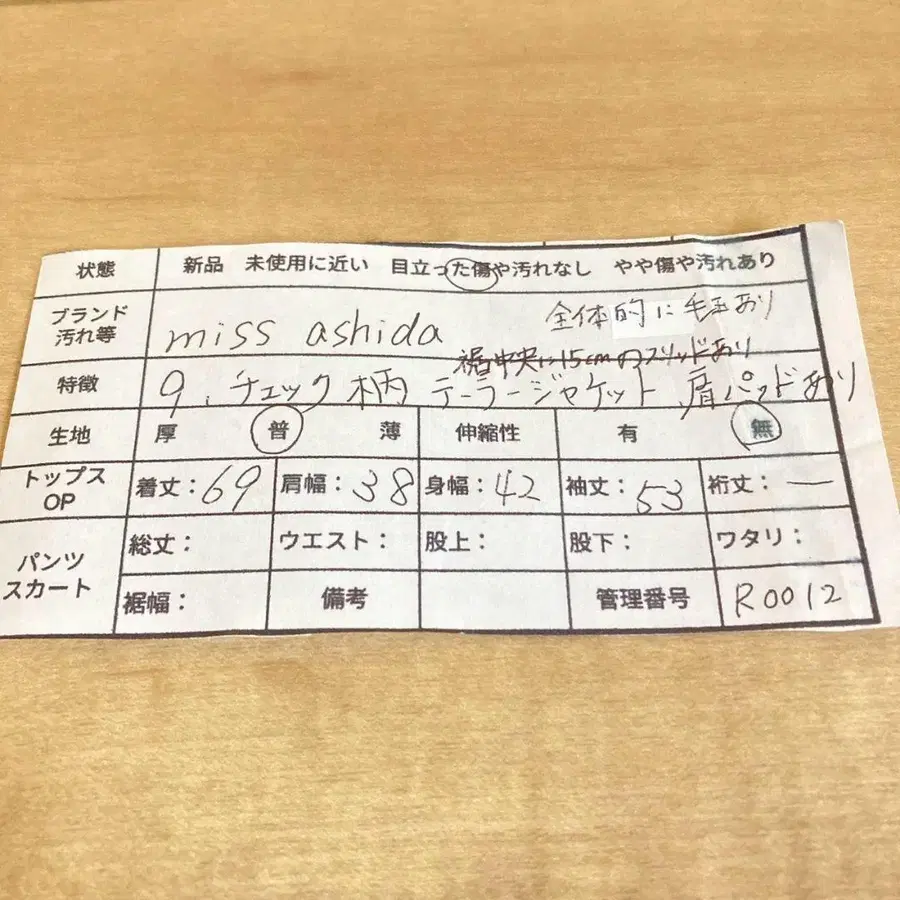 状態 新品 未使用に近い 目立った傷や汚れなし やや傷や汚れあり
ブランド
汚れ等
miss ashida 全体的に毛玉あり
裾中央に15cmのスリッドあり
特徴 9. チェック柄 テーラージャケット 肩パッドあり
生地 厚 普 薄 伸縮性 有 無
トップス
OP
着丈:69 肩幅:38 身幅:42 袖丈:53 裄丈:—
パンツ
スカート
総丈: ウエスト: 股上: 股下: ワタリ:
裾幅: 備考 管理番号 R0012